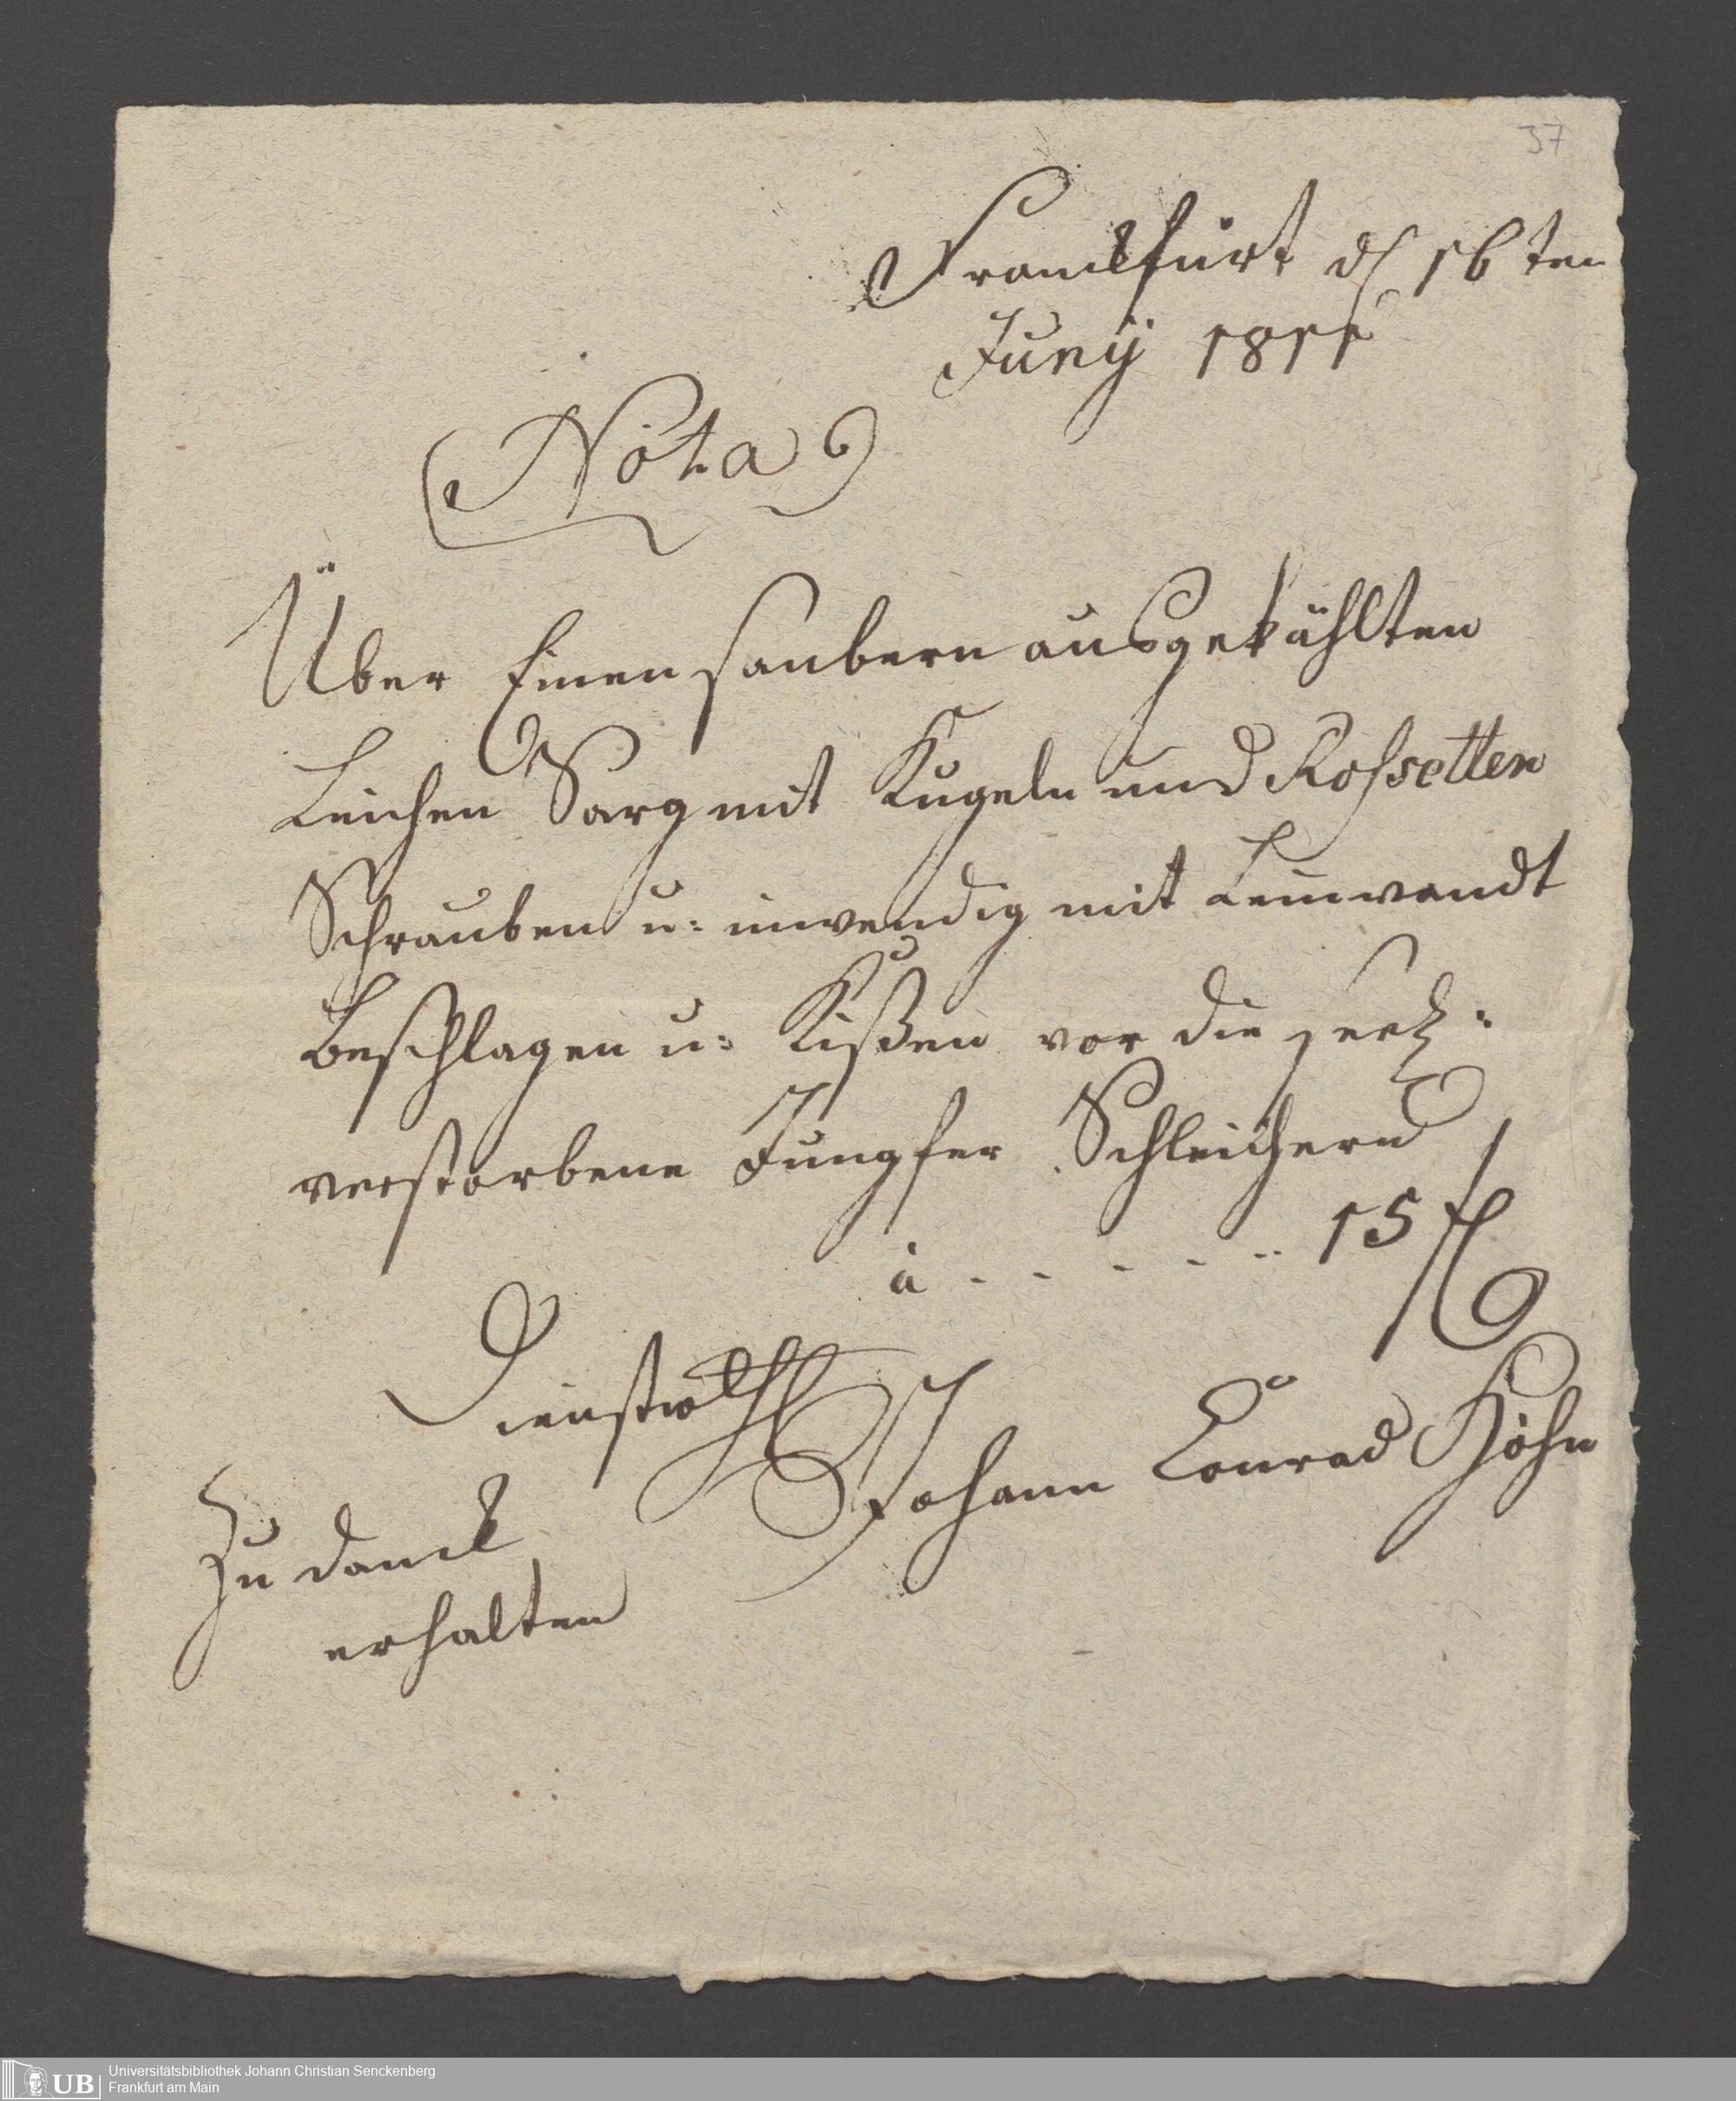 37
Franckfurt d 16ten
Juny 1811
Nota
Über Einen saubern ausgekählten
Leichen Sarg mit Kugeln und Rossetten
Schrauben u: inwendig mit Leinwandt
Beschlagen u: Kißen vor die seel:
verstorbene Jungfer Schleichern
à - - - - - 15 fl
Johann Conrad Höhn
Zu danck
erhalten
UB Universitätsbibliothek Johann Christian Senckenberg
Frankfurt am Main